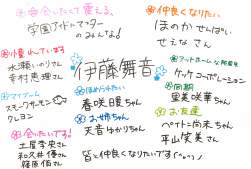 ❀会いたくて震える
学園アイドルマスター
のみんな!
❀憧れています
水瀬いのりさん
幸村恵理さん
❀マイブーム
スモークサーモン
クレヨン
❀会いたいです!
土屋李央さん
和久井優さん
篠原侑さん
伊藤舞音
❀ほめられたい
春咲暖ちゃん
❀お姉ちゃん
天音ゆかりちゃん
❀仲良くなりたい
ほのかせんぱい
せぇなさん
❀アットホームな所属先
ケッケコーポレーション
❀同期
里美咲華ちゃん
❀お友達
ペイトン尚未ちゃん
平山笑美さん
皆と仲良くなりたいです(^o^)ノ